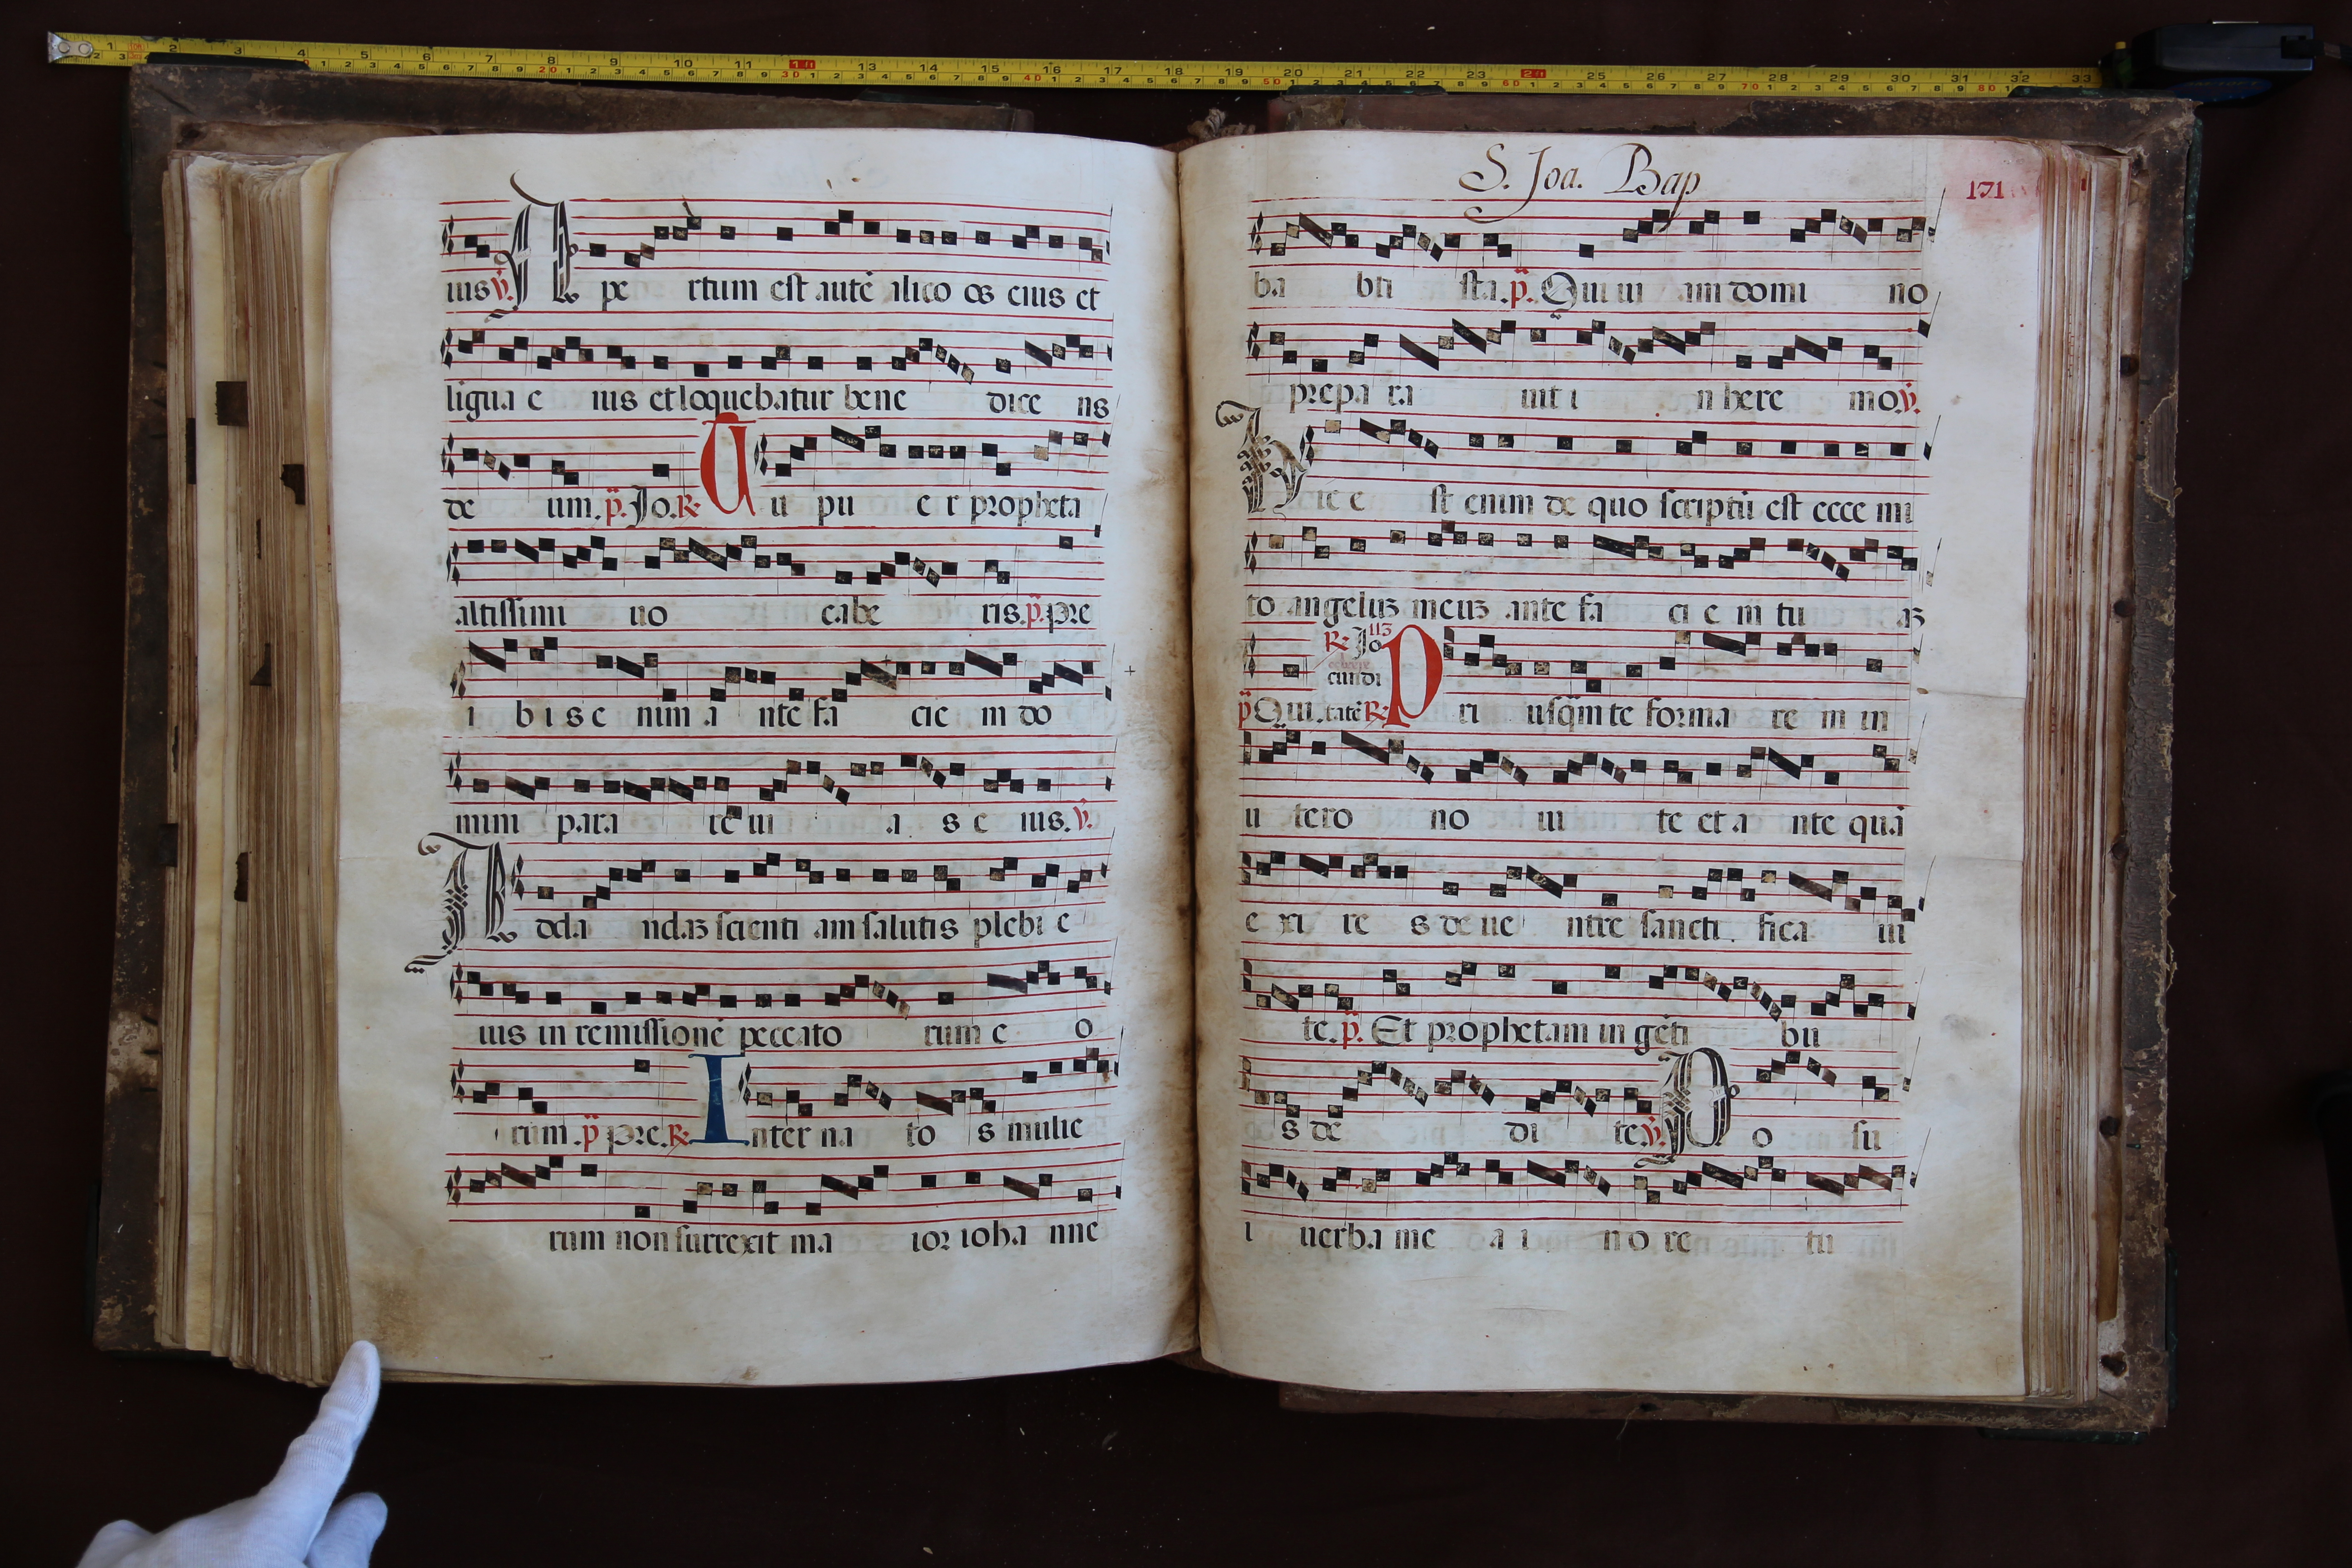 ius ℣. A pe rtum est autē ilico os eius et
ligua e ius et loquebatur bene dice ns
de um. p̄. Jo. ℟. T u pu e r propheta
altissimi uo cabe ris. p̄. pre
i b i s e nim a nte fa cie m do
mini para re ui a s e ius. ℣.
A d da ndaȝ scienti am salutis plebi e
ius in remissionē peccato rum e o
rum. p̄ pre. ℟. I nter na to s mulie
rum non surrexit ma ior ioha nne
S. Joa. Bap
171
ba bti sta. p̄. Qui ui am domi no
prepa ra uit i n here mo. ℣.
H ic e st enim de quo scriptū est ecce mi
to angeluȝ meuȝ ante fa ci e m tu aȝ
℟. Jo 113
cundi
p̄ Qui. tatē ℟. P ri usq̄m te forma re m in
u tero no ui te et a nte quā
e xi re s de ue ntre sancti fica ui
te. p̄. Et prophetam in gēti bu
s de di te ℣. P o su
i uerba me a i n o re tu